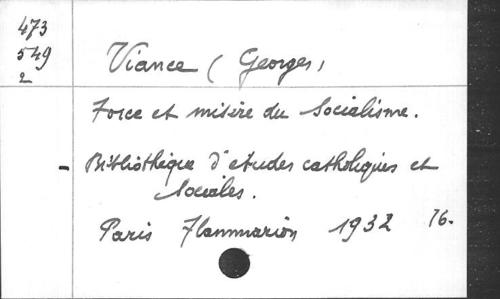 473
549
2
Viance (Georges)
Force et misère du Socialisme.
- Bibliothèque d'etudes catholiques et
Sociales.
Paris Flammarion 1932 16.